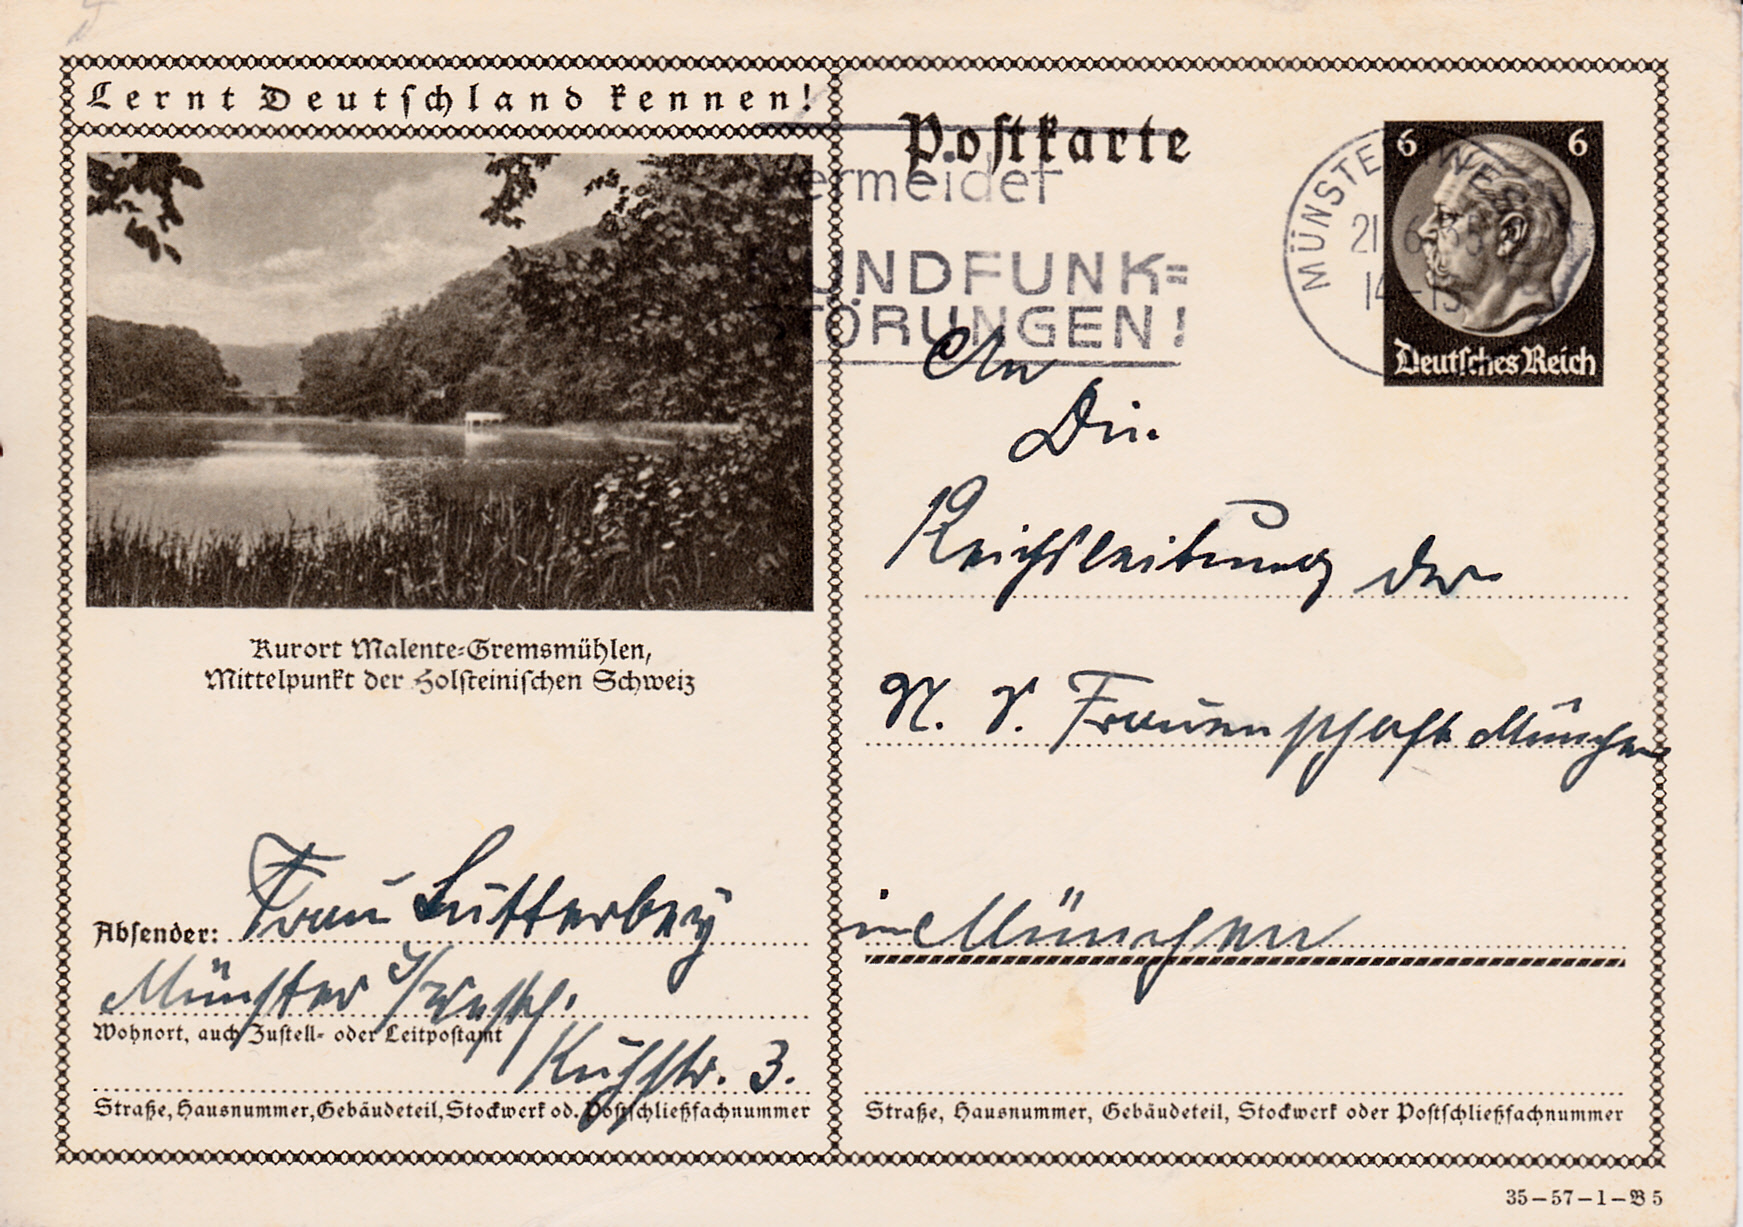 Lernt Deutschland kennen!
Postkarte
Vermeidet
RUNDFUNK=
STÖRUNGEN!
MÜNSTER (WESTF)
21.6.35
14-15
6 6
Deutsches Reich
An
Die
Reichsleitung der
N. S. Frauenschaft München
in München
Straße, Hausnummer, Gebäudeteil, Stockwerk oder Postschließfachnummer
Kurort Malente-Gremsmühlen,
Mittelpunkt der Holsteinischen Schweiz
Absender: Frau Lutterbey
Münster i/Westf.
Wohnort, auch Zustell- oder Leitpostamt
Kuhstr. 3.
Straße, Hausnummer, Gebäudeteil, Stockwerk od. Postschließfachnummer
35-57-1-B5